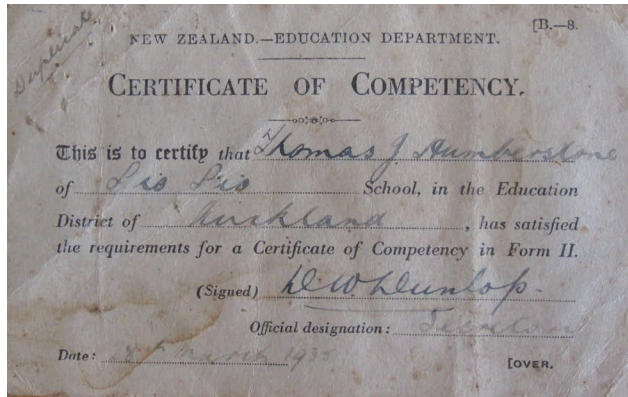 Duplicate
[B.—8.
NEW ZEALAND.—EDUCATION DEPARTMENT.
CERTIFICATE OF COMPETENCY.
This is to certify that Thomas J Humberstone
of Pio Pio School, in the Education
District of Auckland, has satisfied
the requirements for a Certificate of Competency in Form II.
(Signed) D. W. Dunlop.
Official designation:
Date: March 1935
[OVER.